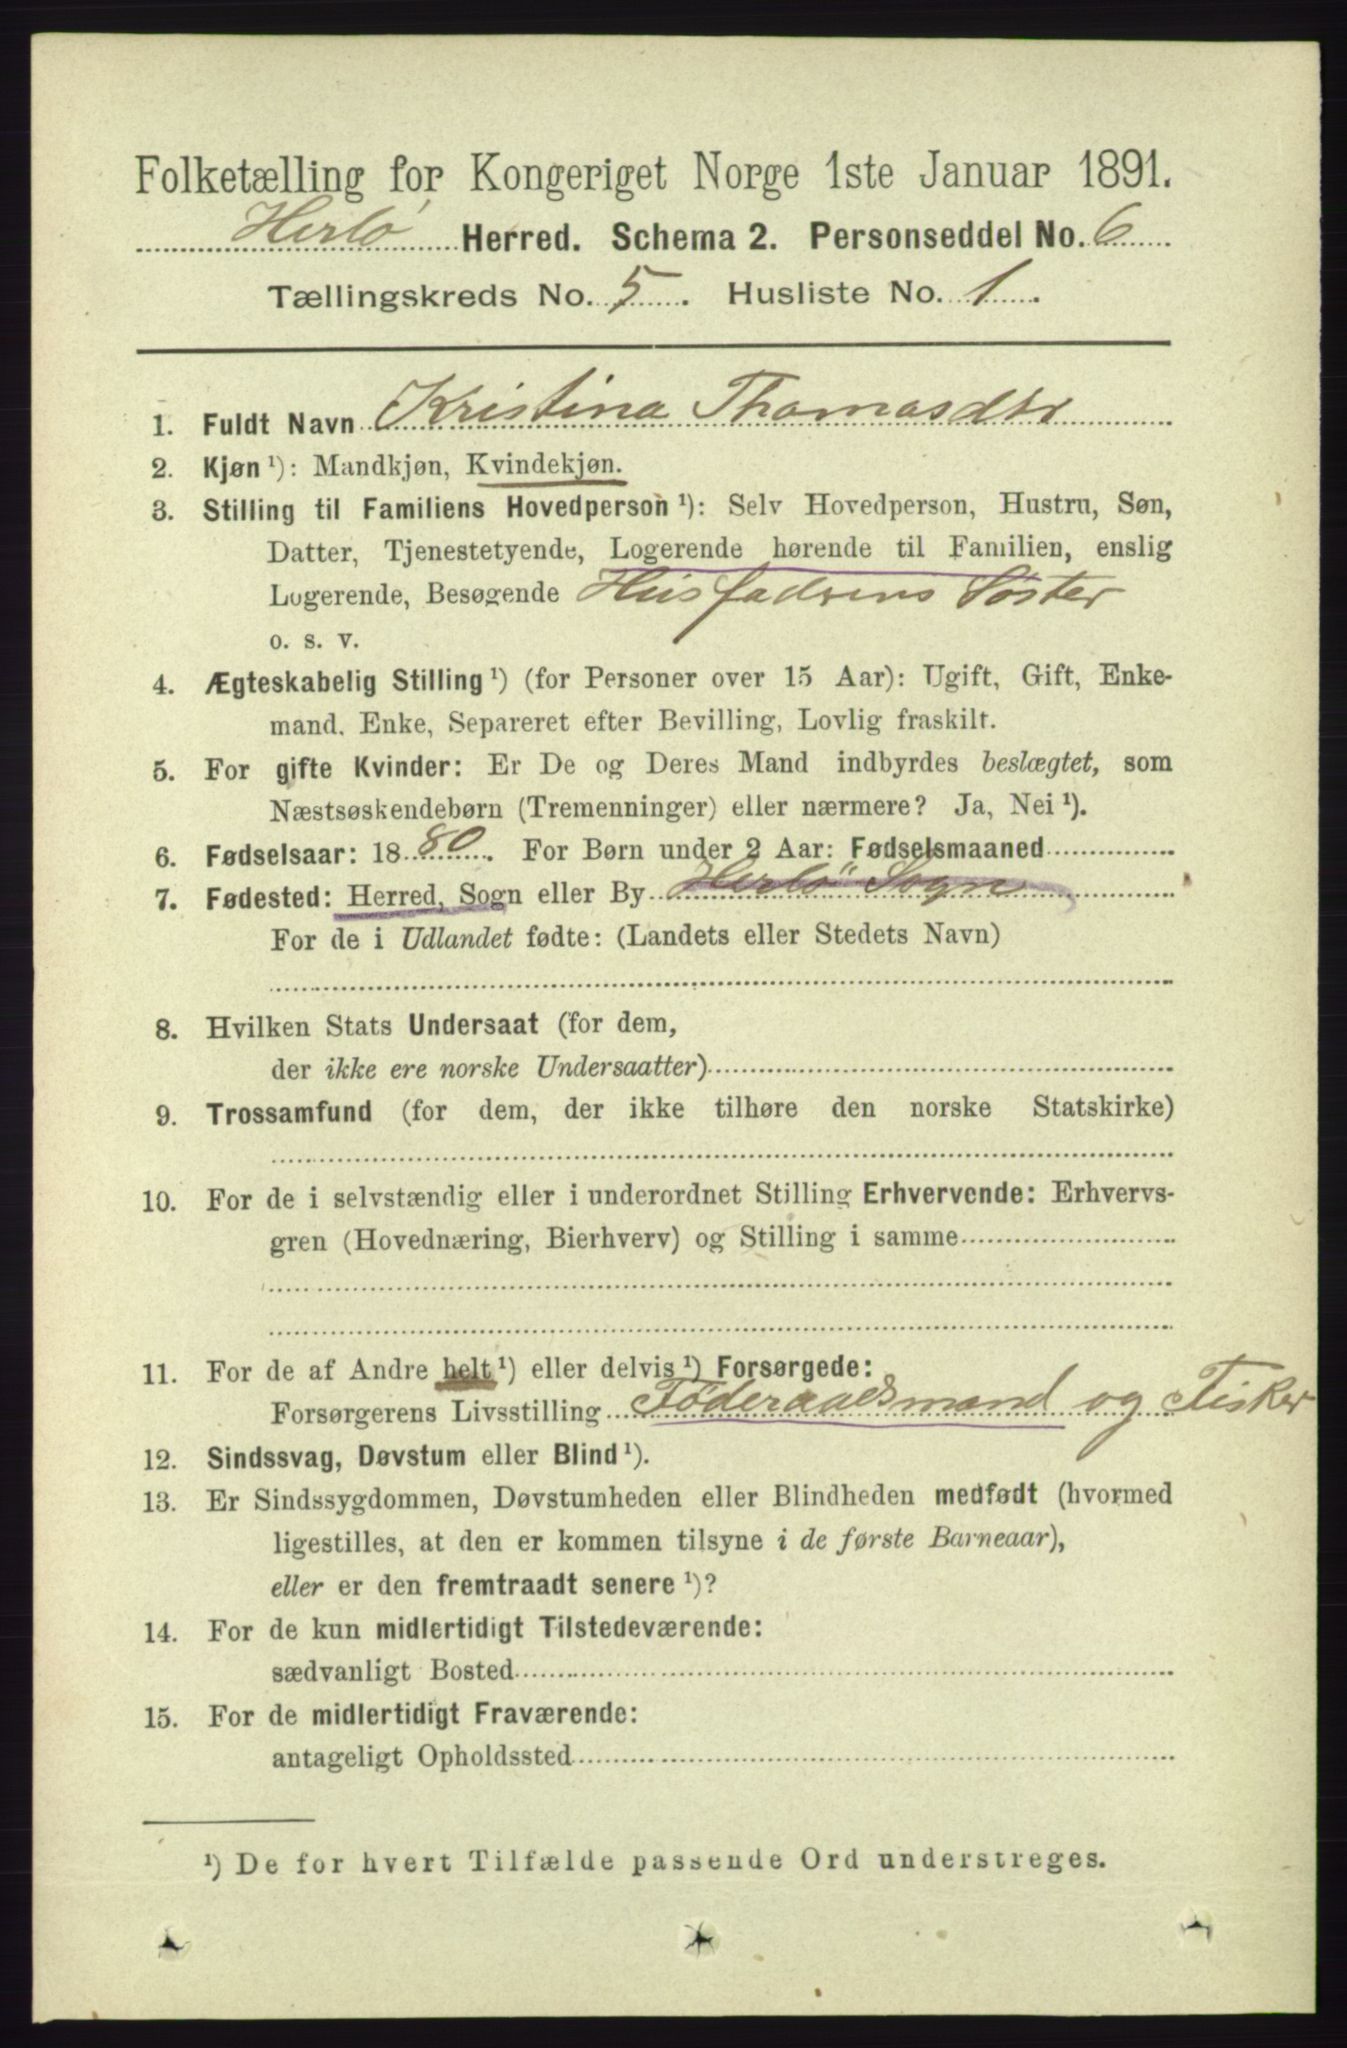 Folketælling for Kongeriget Norge 1ste Januar 1891.
Herlö Herred. Schema 2. Personseddel No. 6
Tællingskreds No. 5. Husliste No. 1.
1. Fuldt Navn Kristina Thomasdtr
2. Kjøn ¹): Mandkjøn, Kvindekjøn.
3. Stilling til Familiens Hovedperson ¹): Selv Hovedperson, Hustru, Søn,
Datter, Tjenestetyende, Logerende hørende til Familien, enslig
Logerende, Besøgende Husfadrens Söster
o. s. v.
4. Ægteskabelig Stilling ¹) (for Personer over 15 Aar): Ugift, Gift, Enke-
mand, Enke, Separeret efter Bevilling, Lovlig fraskilt.
5. For gifte Kvinder: Er De og Deres Mand indbyrdes beslægtet, som
Næstsøskendebørn (Tremenninger) eller nærmere? Ja, Nei ¹).
6. Fødselsaar: 1880. For Børn under 2 Aar: Fødselsmaaned
7. Fødested: Herred, Sogn eller By Herlö Sogn
For de i Udlandet fødte: (Landets eller Stedets Navn)
8. Hvilken Stats Undersaat (for dem,
der ikke ere norske Undersaatter)
9. Trossamfund (for dem, der ikke tilhøre den norske Statskirke)
10. For de i selvstændig eller i underordnet Stilling Erhvervende: Erhvervs-
gren (Hovednæring, Bierhverv) og Stilling i samme
11. For de af Andre helt ¹) eller delvis ¹) Forsørgede:
Forsørgerens Livsstilling Föderaadsmand og Fisker
12. Sindssvag, Døvstum eller Blind ¹).
13. Er Sindssygdommen, Døvstumheden eller Blindheden medfødt (hvormed
ligestilles, at den er kommen tilsyne i de første Barneaar),
eller er den fremtraadt senere ¹)?
14. For de kun midlertidigt Tilstedeværende:
sædvanligt Bosted
15. For de midlertidigt Fraværende:
antageligt Opholdssted
¹) De for hvert Tilfælde passende Ord understreges.